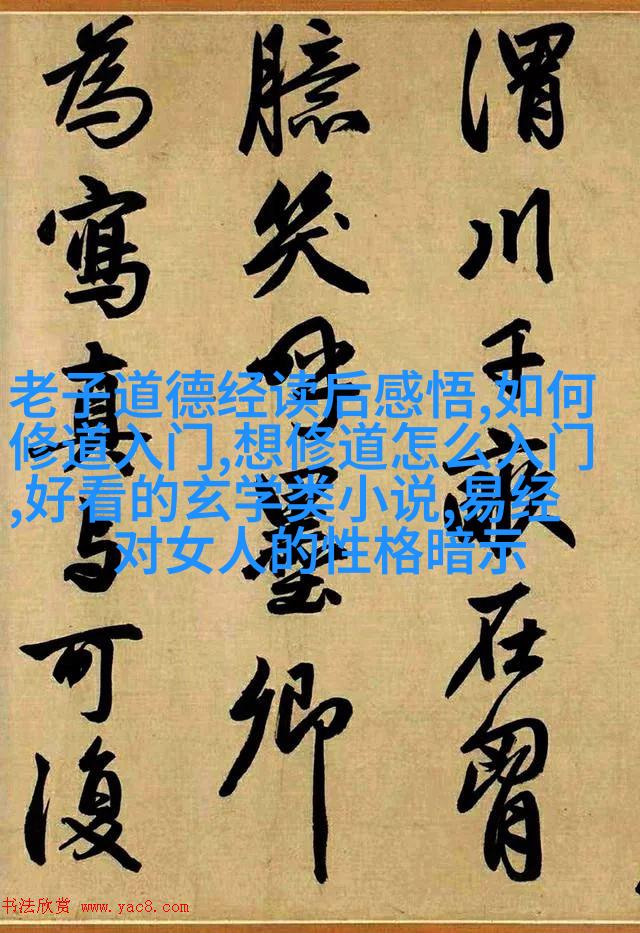 渭川千畝在胷
臆笑呼墨卿
為寫真与可復
老子道德经读后感悟,如何
修道入门,想修道怎么入门
,好看的玄学类小说,易经
对女人的性格暗示
书法欣赏 www.yac8.com